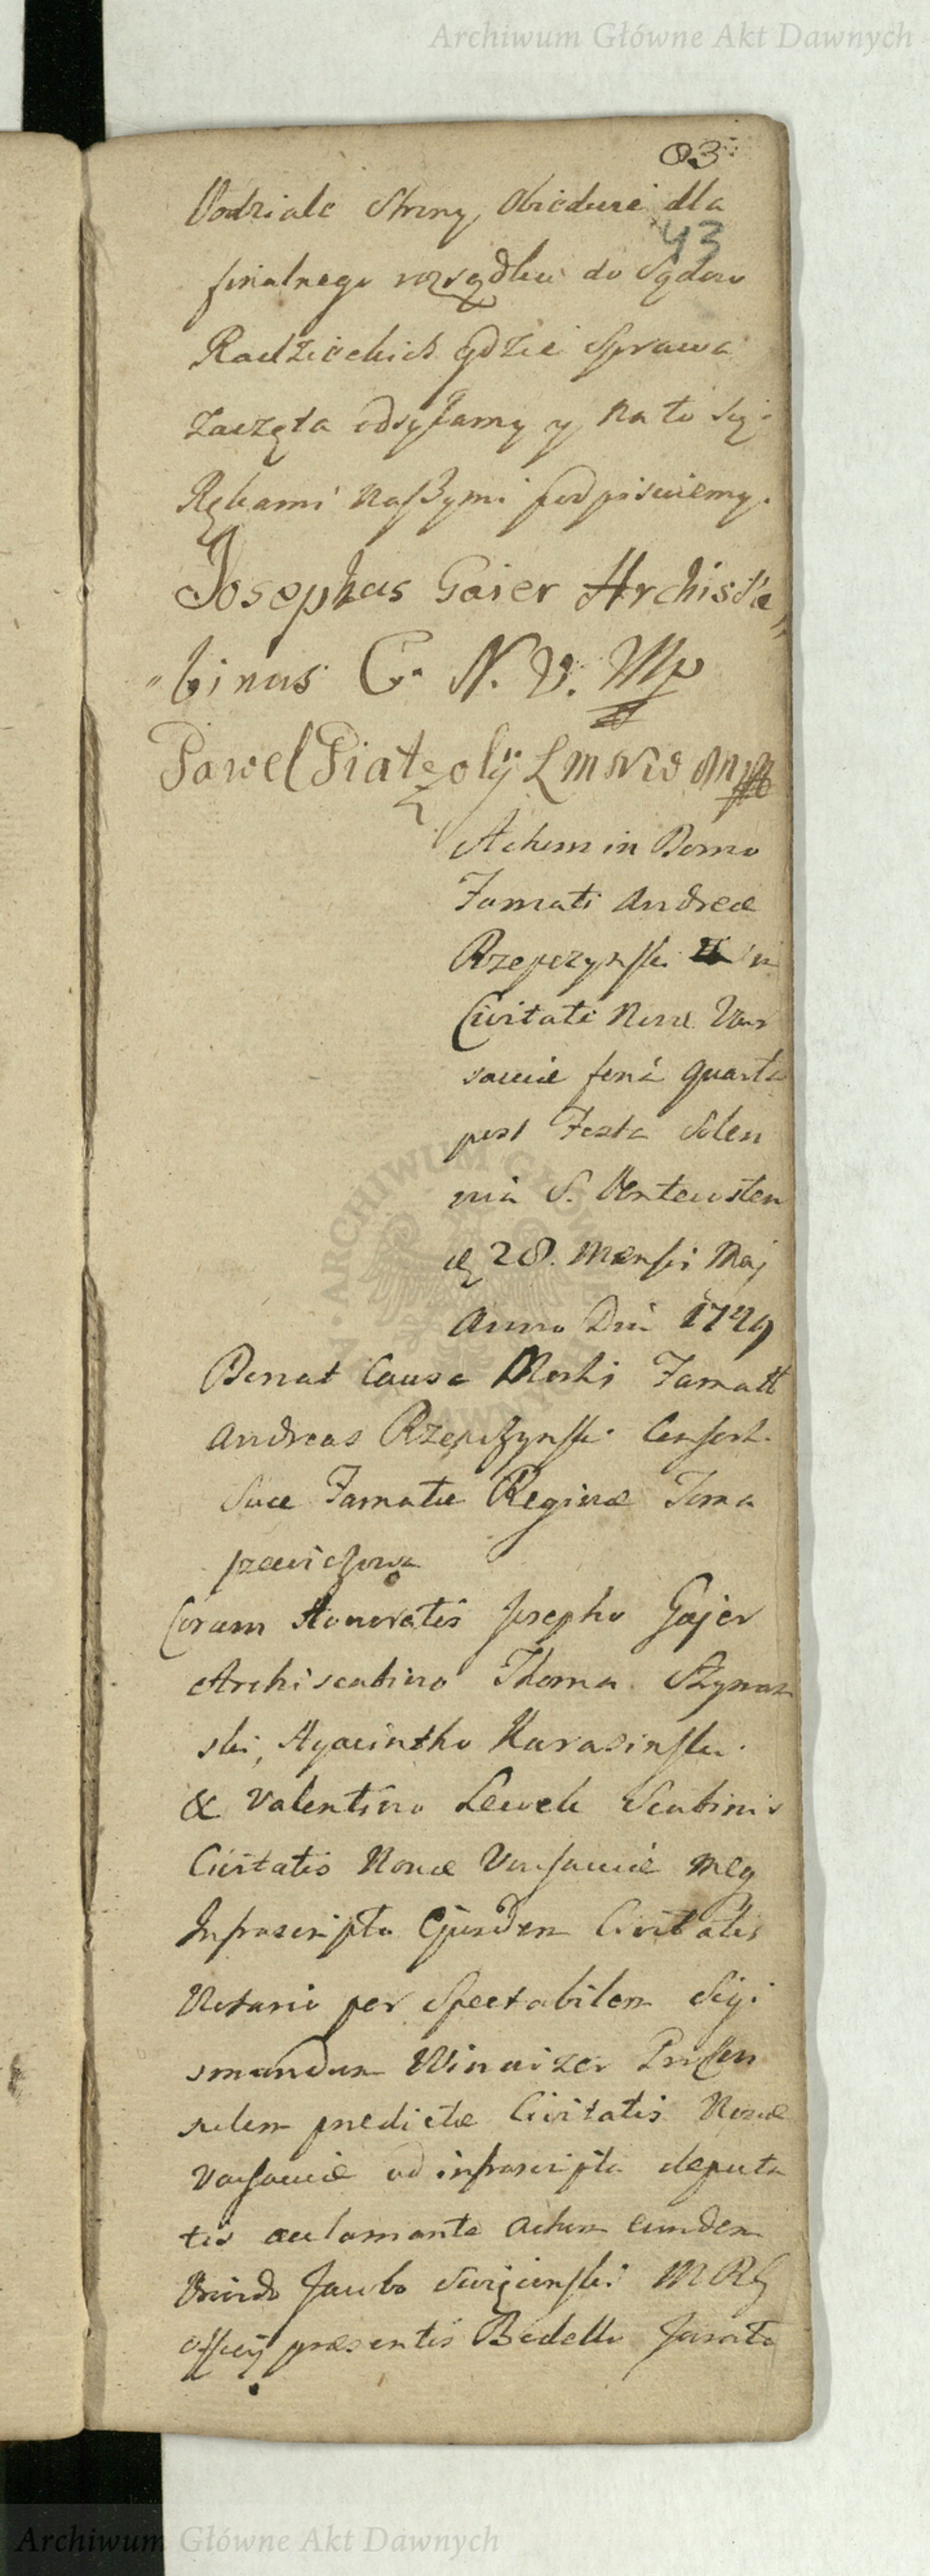 Archiwum Główne Akt Dawnych
83
Podziale Strony, Obiedwie dla
43
finalnego rozsądku do Sądow
Radzieckich gdzie Sprawa
zaczęta odsyłamy y na to się
Rękami naszymi podpisuiemy.
Josephus Gaier Archisca
binus C. N. V. Mp
Pawel Piat
Actum in Domo
Famati Andreæ
Rzepczynski in
Civitate Novæ Var
saviæ feriâ quarta
post Festa Solen
nia S. Pentecosten
28. Mensis Maj
Anno Dni 1749
Penat Causa Morbi Famatt
Andreas Rzepczynski Consort
Suæ Famatæ Reginæ Toma
szewiczowa
Coram Honoratis Josepho Gajer
Archiscabino Thoma
ski, Hyacintho Karasinski
& Valentino Lewek Scabinis
Civitatis Novæ Varsaviæ meq
Infrascripto Ejusdem Civitatis
Notario per Spectabilem Sigi
smundum Winaizer Procon
sulem prædictæ Civitatis Novæ
Varsaviæ ad infrascripta deputa
tis acclamante Actum eundem
Provido Jacobo MRG
Officij præsentis Bedello Jurato
Archiwum Główne Akt Dawnych